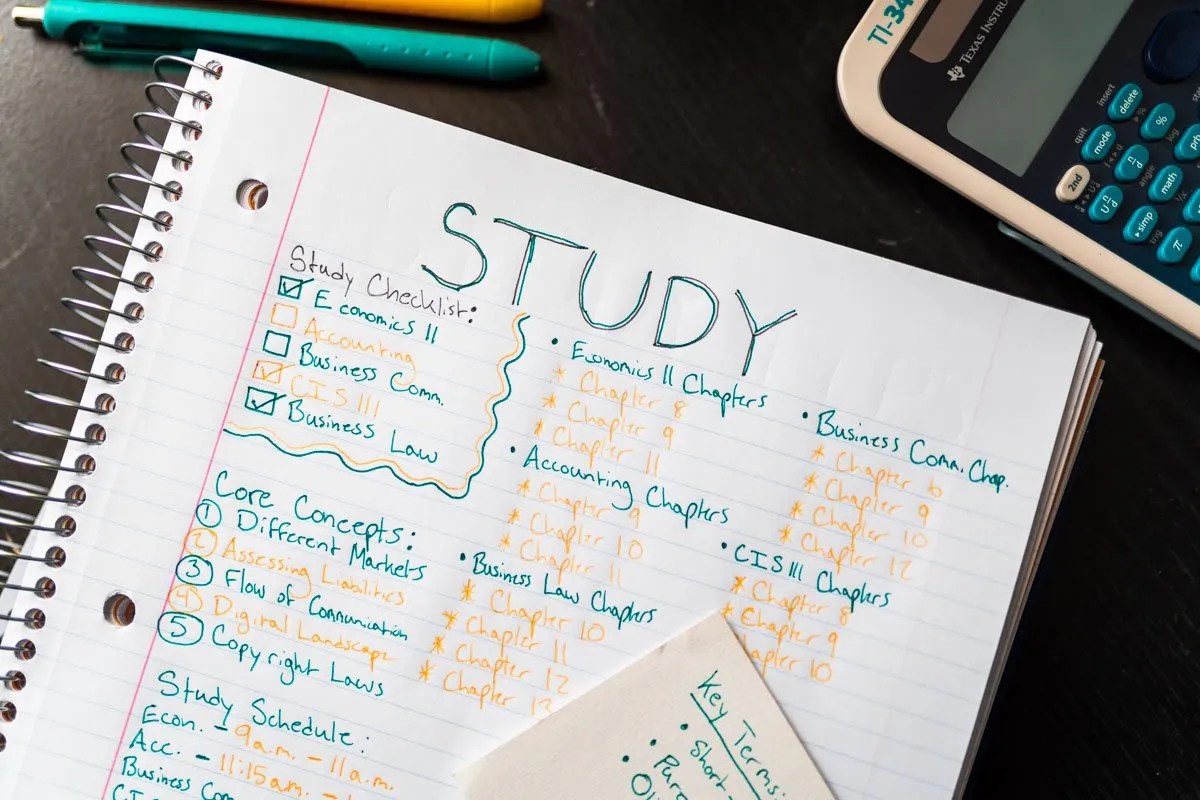 STUDY
Study Checklist:
Economics II
Accounting
Business Comm.
CIS III
Business Law
• Economics II Chapters
* Chapter 8
* Chapter 9
* Chapter 11
• Accounting Chapters
* Chapter 9
* Chapter 10
* Chapter 11
• Business Law Chapters
* Chapter 10
* Chapter 11
* Chapter 12
* Chapter 13
• Business Comm. Chap.
* Chapter 6
* Chapter 9
* Chapter 10
* Chapter 12
• CIS III Chapters
* Chapter 8
* Chapter 9
10
Core Concepts:
① Different Markets
② Assessing Liabilities
③ Flow of Communication
④ Digital Landscape
⑤ Copyright Laws
Study Schedule:
Econ. - 9a.m. - 11a.m.
Acc. - 11:15am. -
Business
Key Terms:
• Short-
TEXAS
insert
delete
quit
mode
2nd
%
log
angle
math
simp
π